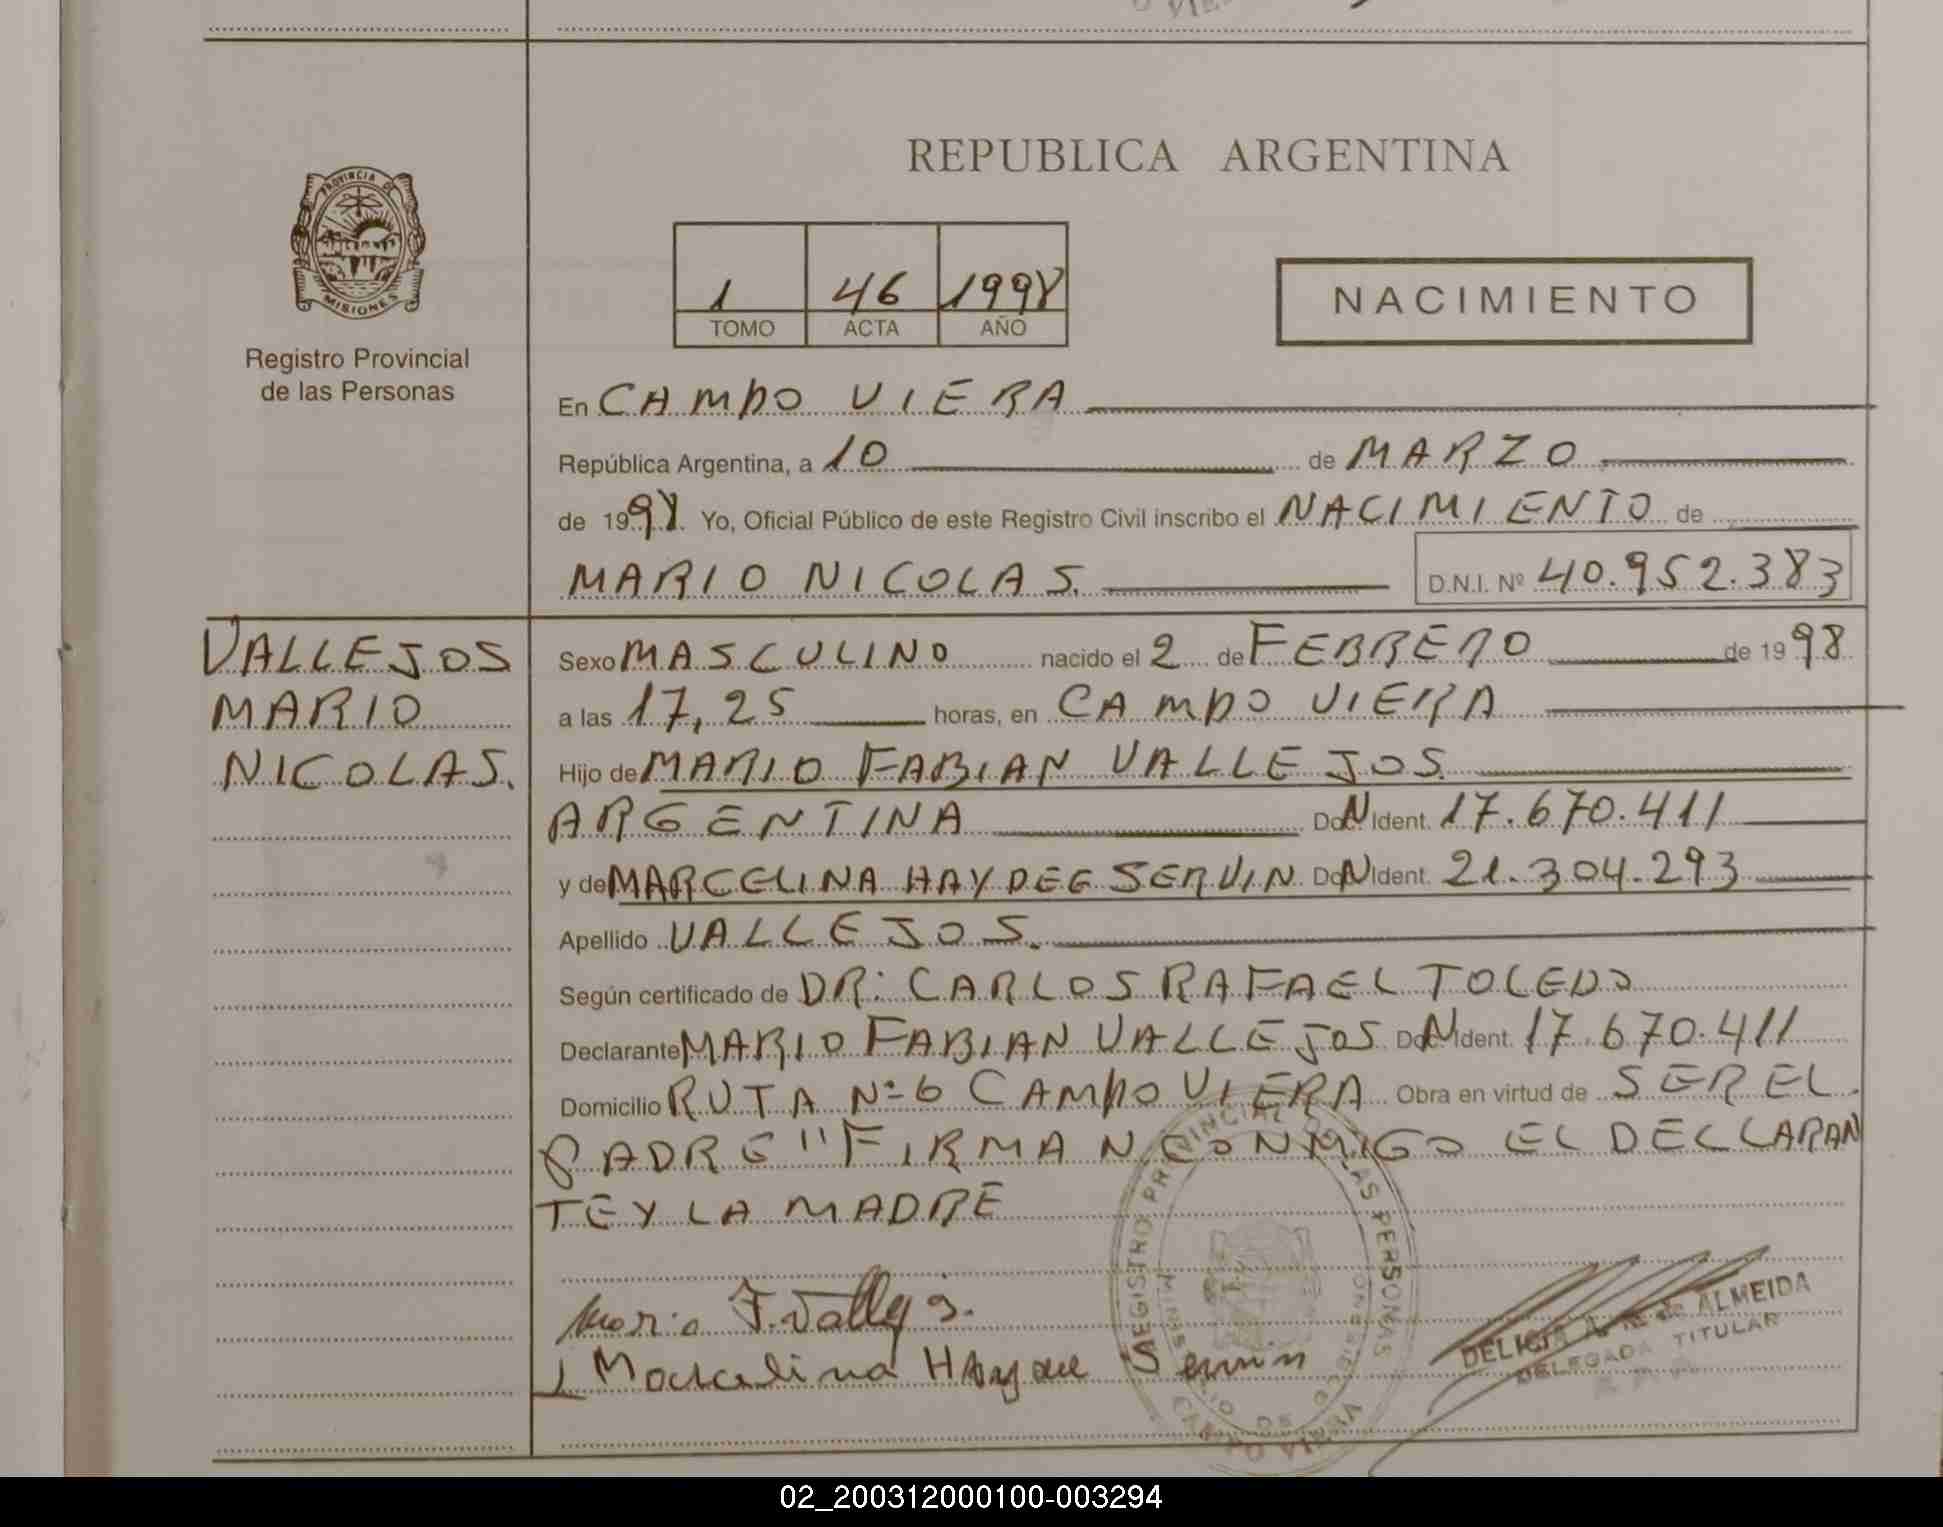 REPUBLICA ARGENTINA
PROVINCIA DE
MISIONES
Registro Provincial
de las Personas
1 46 1998
TOMO ACTA AÑO
NACIMIENTO
En CAMPO VIERA
República Argentina, a 10 de MARZO
de 1998. Yo, Oficial Público de este Registro Civil inscribo el NACIMIENTO de
MARIO NICOLAS. D.N.I. Nº 40.952.383
VALLEJOS
MARIO
NICOLAS.
Sexo MASCULINO nacido el 2 de FEBRERO de 1998
a las 17,25 horas, en CAMPO VIERA
Hijo de MARIO FABIAN VALLEJOS.
ARGENTINA Doc. N Ident. 17.670.411
y de MARCELINA HAYDEE SERVIN Doc. N Ident. 21.304.293
Apellido VALLEJOS.
Según certificado de DR: CARLOS RAFAEL TOLEDO
Declarante MARIO FABIAN VALLEJOS Doc. N Ident. 17.670.411
Domicilio RUTA Nº 6 CAMPO VIERA Obra en virtud de SER EL
PADRE "FIRMAN CONMIGO EL DECLARAN
TE Y LA MADRE
REGISTRO PROVINCIAL DE LAS PERSONAS
CAMPO VIERA
Mario F. Vallejos.
Marcelina Haydee Servin
DELICIA ALMEIDA
DELEGADA TITULAR
02_200312000100-003294